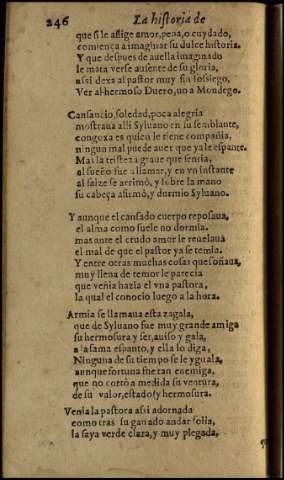 246 La historia de
que si le aflige amor, pena, o cuydado,
comiença a imaginar su dulce historia.
Y que despues de auella imaginado
le mata verse ausente de su gloria,
assi dexa al pastor muy sin sossiego,
Ver al hermoso Duero, uo a Mondego.
Cansancio, soledad, poca alegria
mostraua alli Syluano en su semblante,
congoxa es quien le tiene compañia,
ningun mal puede auer que ya le espante.
Mas la tristeza graue que sentia,
al sueño fue a llamar, y en vn instante
al salze se arrimò, y sobre la mano
su cabeça afirmò, y durmio Syluano.
Y aunque el cansado cuerpo reposaua,
el alma como suele no dormia.
mas ante el crudo amor le reuelaua
el mal de que el pastor ya se temia.
Y entre otras muchas cosas que soñaua,
muy llena de temor le parecia
que venia hazia el vna pastora,
la qual el conocio luego a la hora.
Armia se llamaua esta zagala,
que de Syluano fue muy grande amiga
su hermosura y ser, auiso y gala,
a la fama espanto, y ella lo diga,
Ninguna de su tiempo se le yguala,
aunque fortuna fue tan enemiga,
que no cortò a medida su ventura,
de su valor, estado y hermosura.
Venia la pastora assi adornada
como tras su ganado andar solia,
la saya verde clara, y muy plegada,